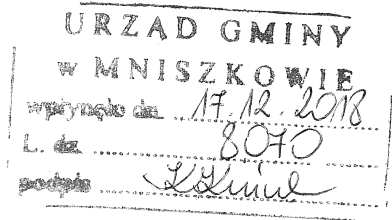 URZĄD GMINY
w MNISZKOWIE
wpłynęło dn. 17.12.2018
L. dz. 8070
podpis